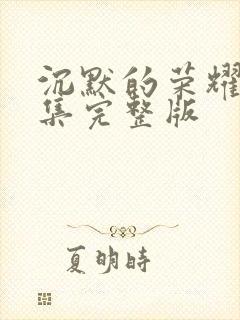 沉默的荣耀
集完整版
夏明时